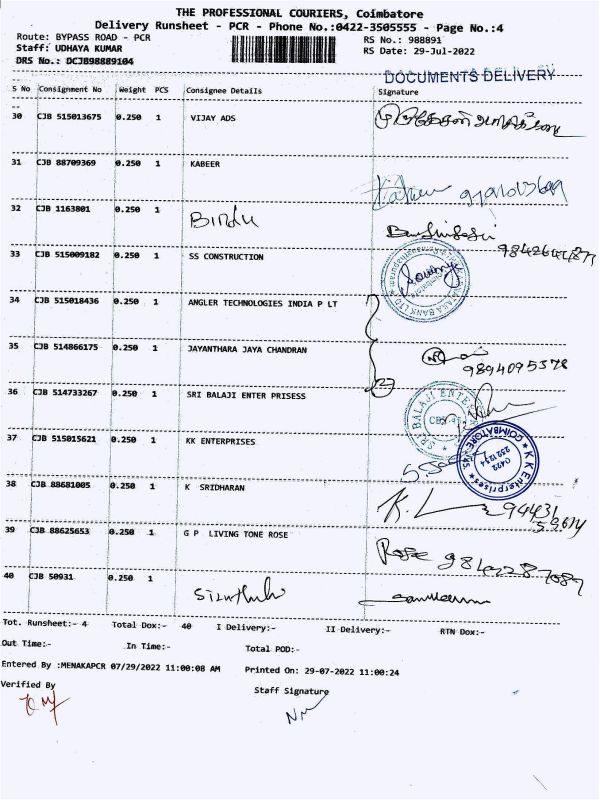 THE PROFESSIONAL COURIERS, Coimbatore
Delivery Runsheet - PCR - Phone No.:0422-3505555 - Page No.:4
Route: BYPASS ROAD - PCR
RS No.: 988891
Staff: UDHAYA KUMAR
RS Date: 29-Jul-2022
DRS No.: DCJB98889104
DOCUMENTS DELIVERY
S No Consignment No Weight PCS Consignee Details Signature
30 CJB 515013675 0.250 1 VIJAY ADS
31 CJB 88709369 0.250 1 KABEER
32 CJB 1163801 0.250 1 Bindu
33 CJB 515009182 0.250 1 SS CONSTRUCTION
34 CJB 515018436 0.250 1 ANGLER TECHNOLOGIES INDIA P LT
35 CJB 514866175 0.250 1 JAYANTHARA JAYA CHANDRAN
9894095378
36 CJB 514733267 0.250 1 SRI BALAJI ENTER PRISESS
SRI BALAJI ENTE
37 CJB 515015621 0.250 1 KK ENTERPRISES
KK Enterprises
COIMBATORE
38 CJB 88681005 0.250 1 K SRIDHARAN
39 CJB 88625653 0.250 1 G P LIVING TONE ROSE
Rose
40 CJB 50931 0.250 1
Tot. Runsheet:- 4 Total Dox:- 40 I Delivery:- II Delivery:- RTN Dox:-
Out Time:- In Time:- Total POD:-
Entered By :MENAKAPCR 07/29/2022 11:00:08 AM Printed On: 29-07-2022 11:00:24
Verified By Staff Signature